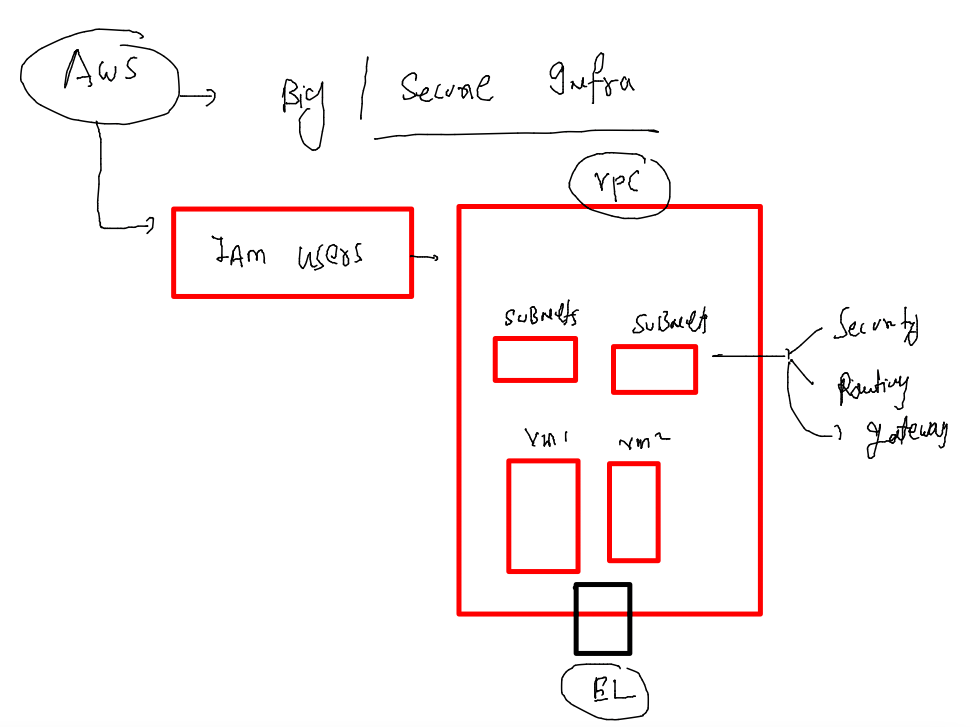 AWS
Big / Secure Infra
VPC
IAM users
SUBNets
SUBNets
Security
Routing
gateway
Vm1
vm2
EL